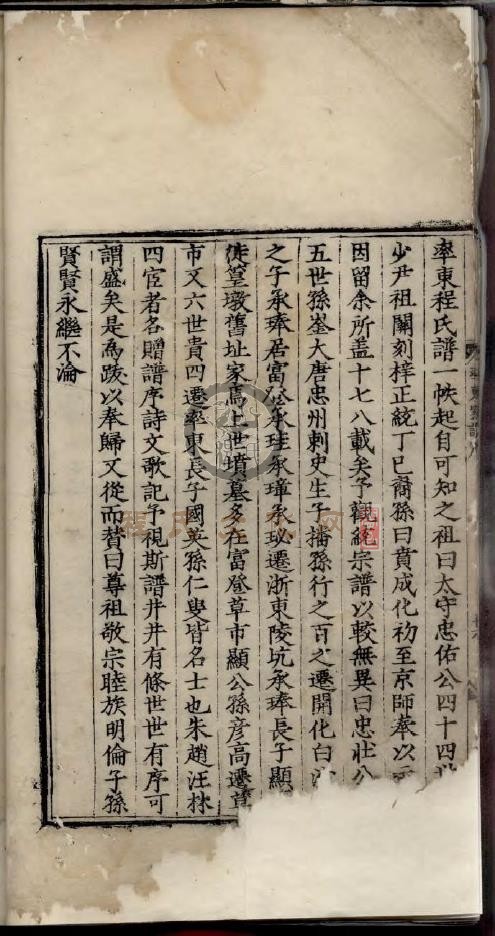 率東程氏譜一帙起自可知之祖曰太守忠佑公四十四世
少尹祖闌刻梓正統丁巳裔孫曰賁成化初至京師奉以示
因留余所盖十七八載矣予觀統宗譜以較無異曰忠壯公
五世孫崟大唐忠州刺史生子播孫行之百之遷開化白
之子承琫居富登承珪承璋承玞遷浙東陵坑承琫長子顯
徙篁墩舊址家焉上世墳墓多在富登草市顯公孫彦高遷草
市又六世貴四遷率東長子國英孫仁叟皆名士也朱趙汪林
四宦者名贈譜序詩文歌記予視斯譜井井有條世世有序可
謂盛矣是為跋以奉歸又從而賛曰尊祖敬宗睦族明倫子孫
賢賢永繼不淪